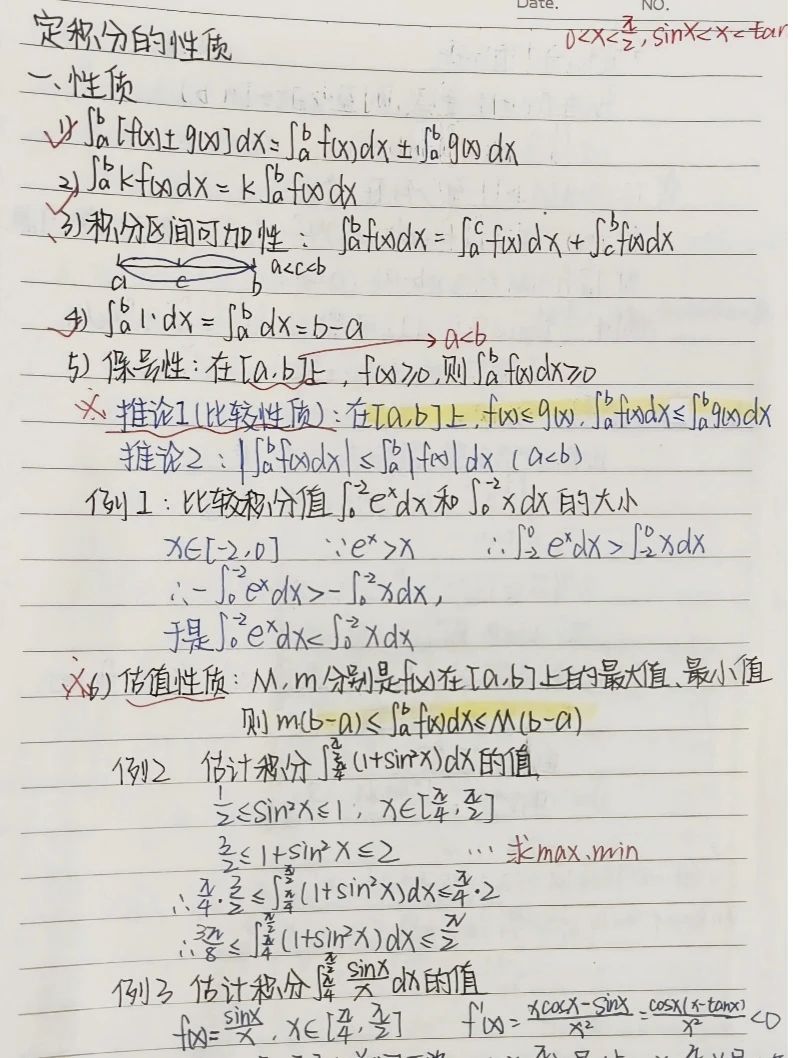 Date. NO.
0<x<π/2, sinx<x<tan
定积分的性质
一、性质
1) ∫_a^b [f(x)±g(x)]dx=∫_a^b f(x)dx±∫_a^b g(x)dx
2) ∫_a^b kf(x)dx=k∫_a^b f(x)dx
3) 积分区间可加性：∫_a^b f(x)dx=∫_a^c f(x)dx+∫_c^b f(x)dx
a c b a<c<b
4) ∫_a^b 1·dx=∫_a^b dx=b-a
→a<b
5) 保号性：在[a,b]上，f(x)≥0,则∫_a^b f(x)dx≥0
※ 推论1(比较性质)：在[a,b]上,f(x)≤g(x),∫_a^b f(x)dx≤∫_a^b g(x)dx
推论2：|∫_a^b f(x)dx|≤∫_a^b |f(x)|dx (a<b)
例1：比较积分值∫_0^-2 e^x dx和∫_0^-2 xdx的大小
x∈[-2,0] ∵e^x>x ∴∫_-2^0 e^x dx>∫_-2^0 xdx
∴-∫_0^-2 e^x dx>-∫_0^-2 xdx,
于是∫_0^-2 e^x dx<∫_0^-2 xdx
※6) 估值性质：M,m分别是f(x)在[a,b]上的最大值、最小值
则m(b-a)≤∫_a^b f(x)dx≤M(b-a)
例2 估计积分∫_π/4^π/2 (1+sin²x)dx的值,
1/2≤sin²x≤1, x∈[π/4,π/2]
3/2≤1+sin²x≤2 …求max、min
∴π/4·3/2≤∫_π/4^π/2 (1+sin²x)dx≤π/4·2
∴3π/8≤∫_π/4^π/2 (1+sin²x)dx≤π/2
例3 估计积分∫_π/4^π/2 sinx/x dx的值
f(x)=sinx/x, x∈[π/4,π/2] f'(x)=(xcosx-sinx)/x²=cosx(x-tanx)/x²<0